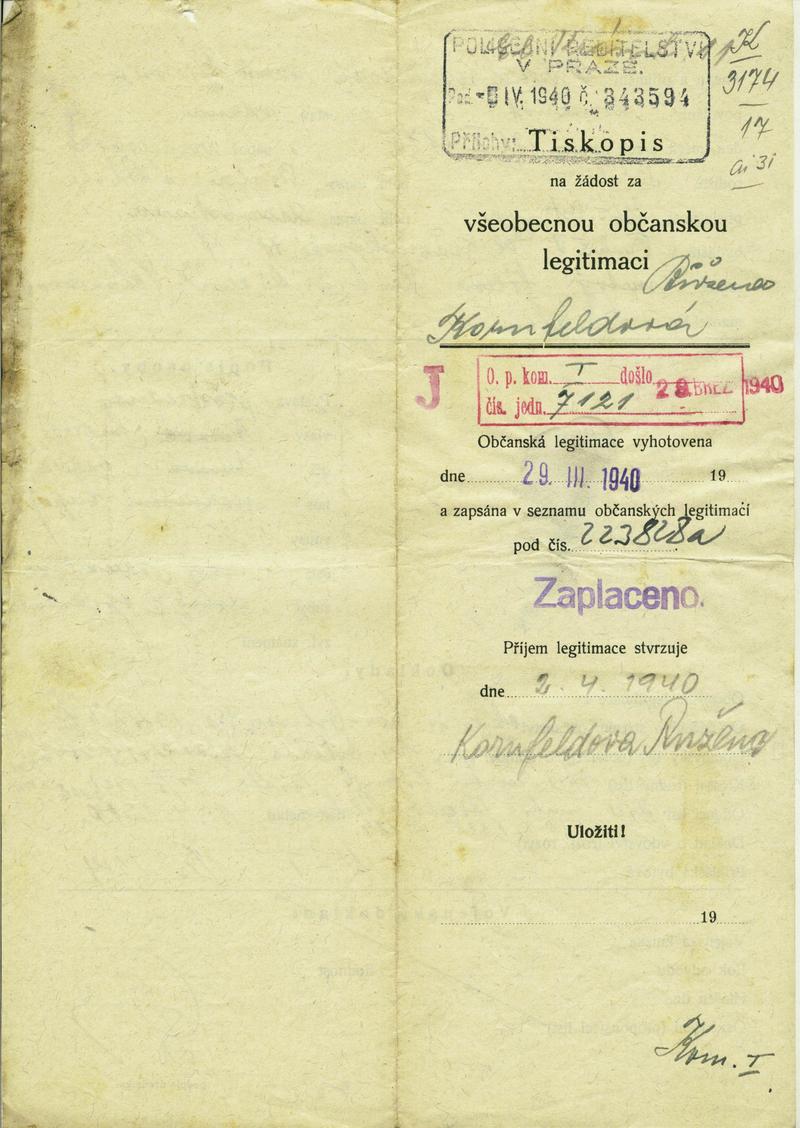 POLICEJNÍ ŘEDITELSTVÍ
V PRAZE.
K
3174
17
Pod. IV. 1940 č. 343594
Přílohy:
Tiskopis
na žádost za
všeobecnou občanskou
legitimaci Růžena
Kornfeldová
J
O. p. kom. I došlo 28. BŘEZ. 1940
čís. jedn. 7121
Občanská legitimace vyhotovena
dne 29. III. 1940 19
a zapsána v seznamu občanských legitimací
pod čís. 223828a
Zaplaceno.
Příjem legitimace stvrzuje
dne 2. 4. 1940
Kornfeldova Růžena
Uložiti!
19
Kom. I